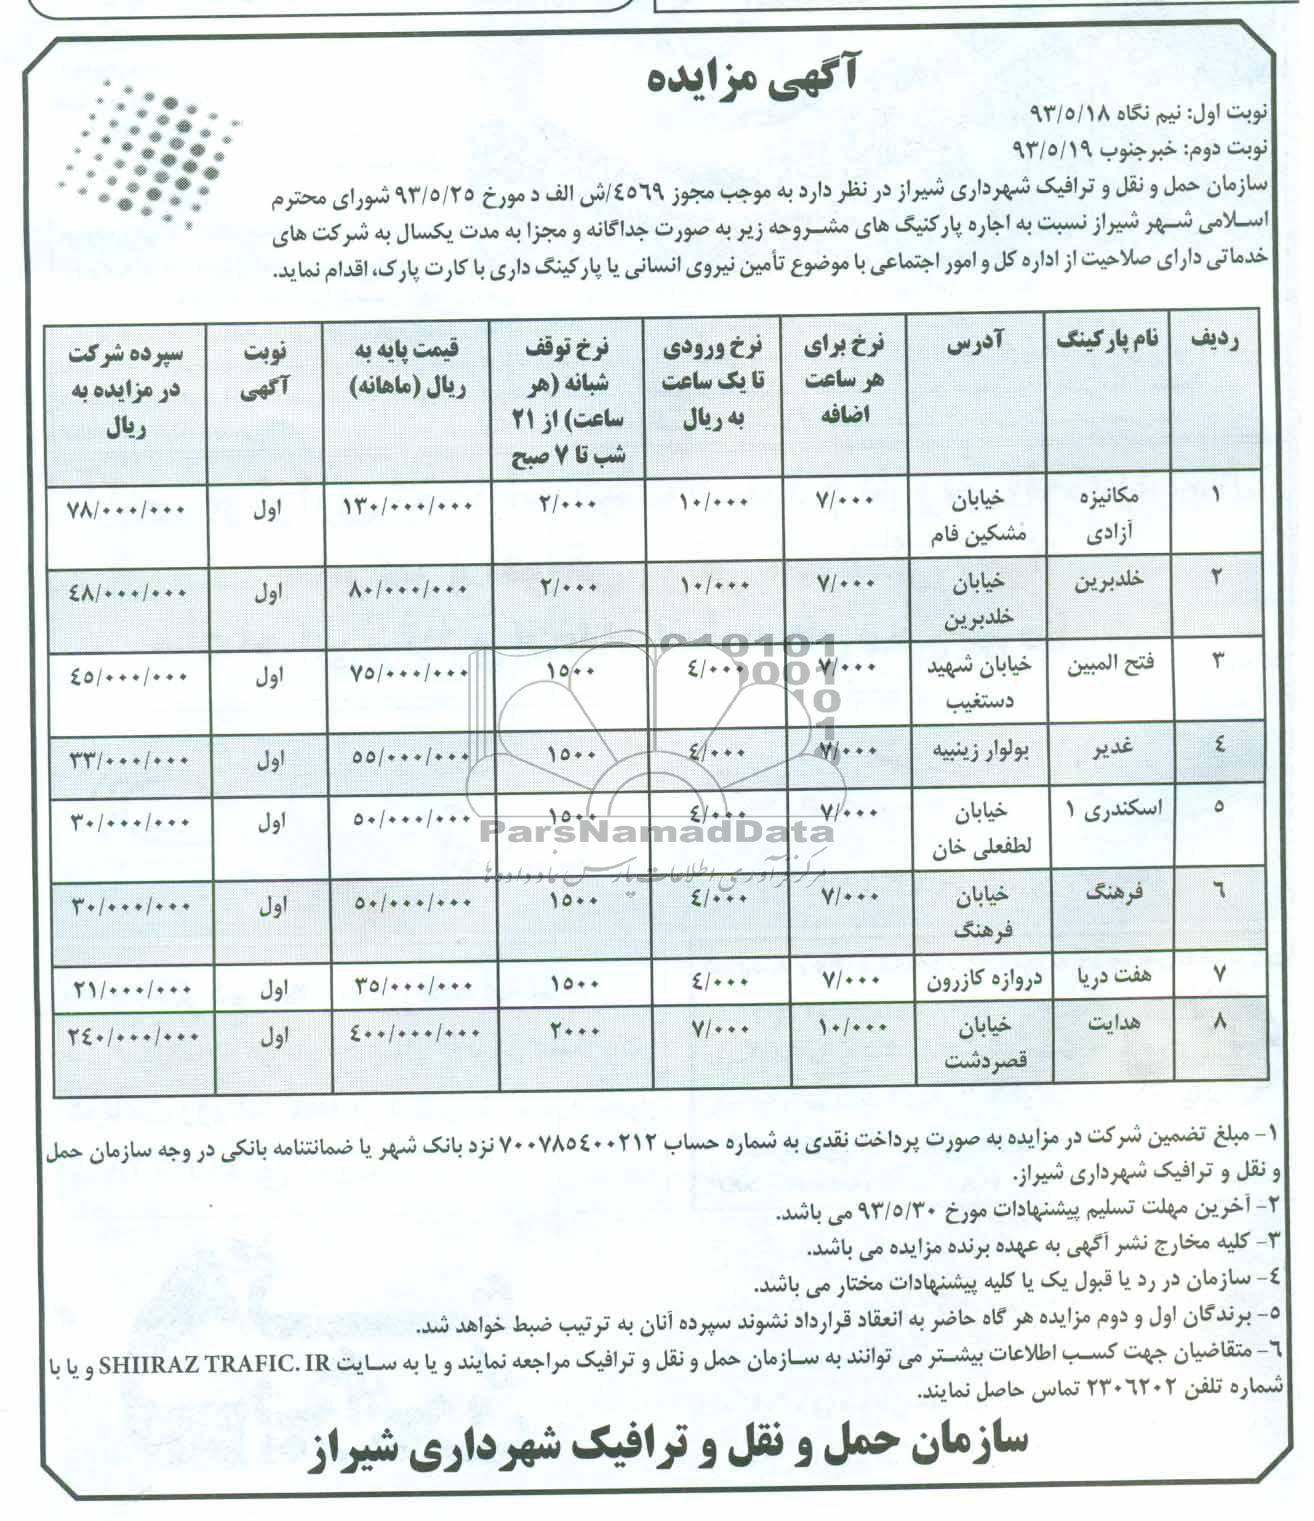 آگهی مزایده
نوبت اول: نیم نگاه ۹۳/۵/۱۸
نوبت دوم: خبرجنوب ۹۳/۵/۱۹
سازمان حمل و نقل و ترافیک شهرداری شیراز در نظر دارد به موجب مجوز ٤٥٦٩/ش الف د مورخ ۹۳/۵/۲۵ شورای محترم
اسلامی شهر شیراز نسبت به اجاره پارکنیگ های مشروحه زیر به صورت جداگانه و مجزا به مدت یکسال به شرکت های
خدماتی دارای صلاحیت از اداره کل و امور اجتماعی با موضوع تأمین نیروی انسانی یا پارکینگ داری با کارت پارک، اقدام نماید.
ردیف | نام پارکینگ | آدرس | نرخ برای هر ساعت اضافه | نرخ ورودی تا یک ساعت به ریال | نرخ توقف شبانه (هر ساعت) از ۲۱ شب تا ۷ صبح | قیمت پایه به ریال (ماهانه) | نوبت آگهی | سپرده شرکت در مزایده به ریال
۱ | مکانیزه آزادی | خیابان مشکین فام | ۷/۰۰۰ | ۱۰/۰۰۰ | ۲/۰۰۰ | ۱۳۰/۰۰۰/۰۰۰ | اول | ۷۸/۰۰۰/۰۰۰
۲ | خلدبرین | خیابان خلدبرین | ۷/۰۰۰ | ۱۰/۰۰۰ | ۲/۰۰۰ | ۸۰/۰۰۰/۰۰۰ | اول | ٤۸/۰۰۰/۰۰۰
۳ | فتح المبین | خیابان شهید دستغیب | ۷/۰۰۰ | ٤/۰۰۰ | ۱۵۰۰ | ۷۵/۰۰۰/۰۰۰ | اول | ٤۵/۰۰۰/۰۰۰
٤ | غدیر | بولوار زینبیه | ۷/۰۰۰ | ٤/۰۰۰ | ۱۵۰۰ | ۵۵/۰۰۰/۰۰۰ | اول | ۳۳/۰۰۰/۰۰۰
۵ | اسکندری ۱ | خیابان لطفعلی خان | ۷/۰۰۰ | ٤/۰۰۰ | ۱۵۰۰ | ۵۰/۰۰۰/۰۰۰ | اول | ۳۰/۰۰۰/۰۰۰
٦ | فرهنگ | خیابان فرهنگ | ۷/۰۰۰ | ٤/۰۰۰ | ۱۵۰۰ | ۵۰/۰۰۰/۰۰۰ | اول | ۳۰/۰۰۰/۰۰۰
۷ | هفت دریا | دروازه کازرون | ۷/۰۰۰ | ٤/۰۰۰ | ۱۵۰۰ | ۳۵/۰۰۰/۰۰۰ | اول | ۲۱/۰۰۰/۰۰۰
۸ | هدایت | خیابان قصردشت | ۱۰/۰۰۰ | ۷/۰۰۰ | ۲۰۰۰ | ٤۰۰/۰۰۰/۰۰۰ | اول | ۲٤۰/۰۰۰/۰۰۰
ParsNamadData
مرکز فرآوری اطلاعات پارس نماد داده‌ها
۱- مبلغ تضمین شرکت در مزایده به صورت پرداخت نقدی به شماره حساب ۷۰۰۷۸۵٤۰۰۲۱۲ نزد بانک شهر یا ضمانتنامه بانکی در وجه سازمان حمل
و نقل و ترافیک شهرداری شیراز.
۲- آخرین مهلت تسلیم پیشنهادات مورخ ۹۳/۵/۳۰ می باشد.
۳- کلیه مخارج نشر آگهی به عهده برنده مزایده می باشد.
٤- سازمان در رد یا قبول یک یا کلیه پیشنهادات مختار می باشد.
۵- برندگان اول و دوم مزایده هر گاه حاضر به انعقاد قرارداد نشوند سپرده آنان به ترتیب ضبط خواهد شد.
٦- متقاضیان جهت کسب اطلاعات بیشتر می توانند به سازمان حمل و نقل و ترافیک مراجعه نمایند و یا به سایت SHIIRAZ TRAFIC.IR و یا با
شماره تلفن ۲۳۰٦۲۰۲ تماس حاصل نمایند.
سازمان حمل و نقل و ترافیک شهرداری شیراز